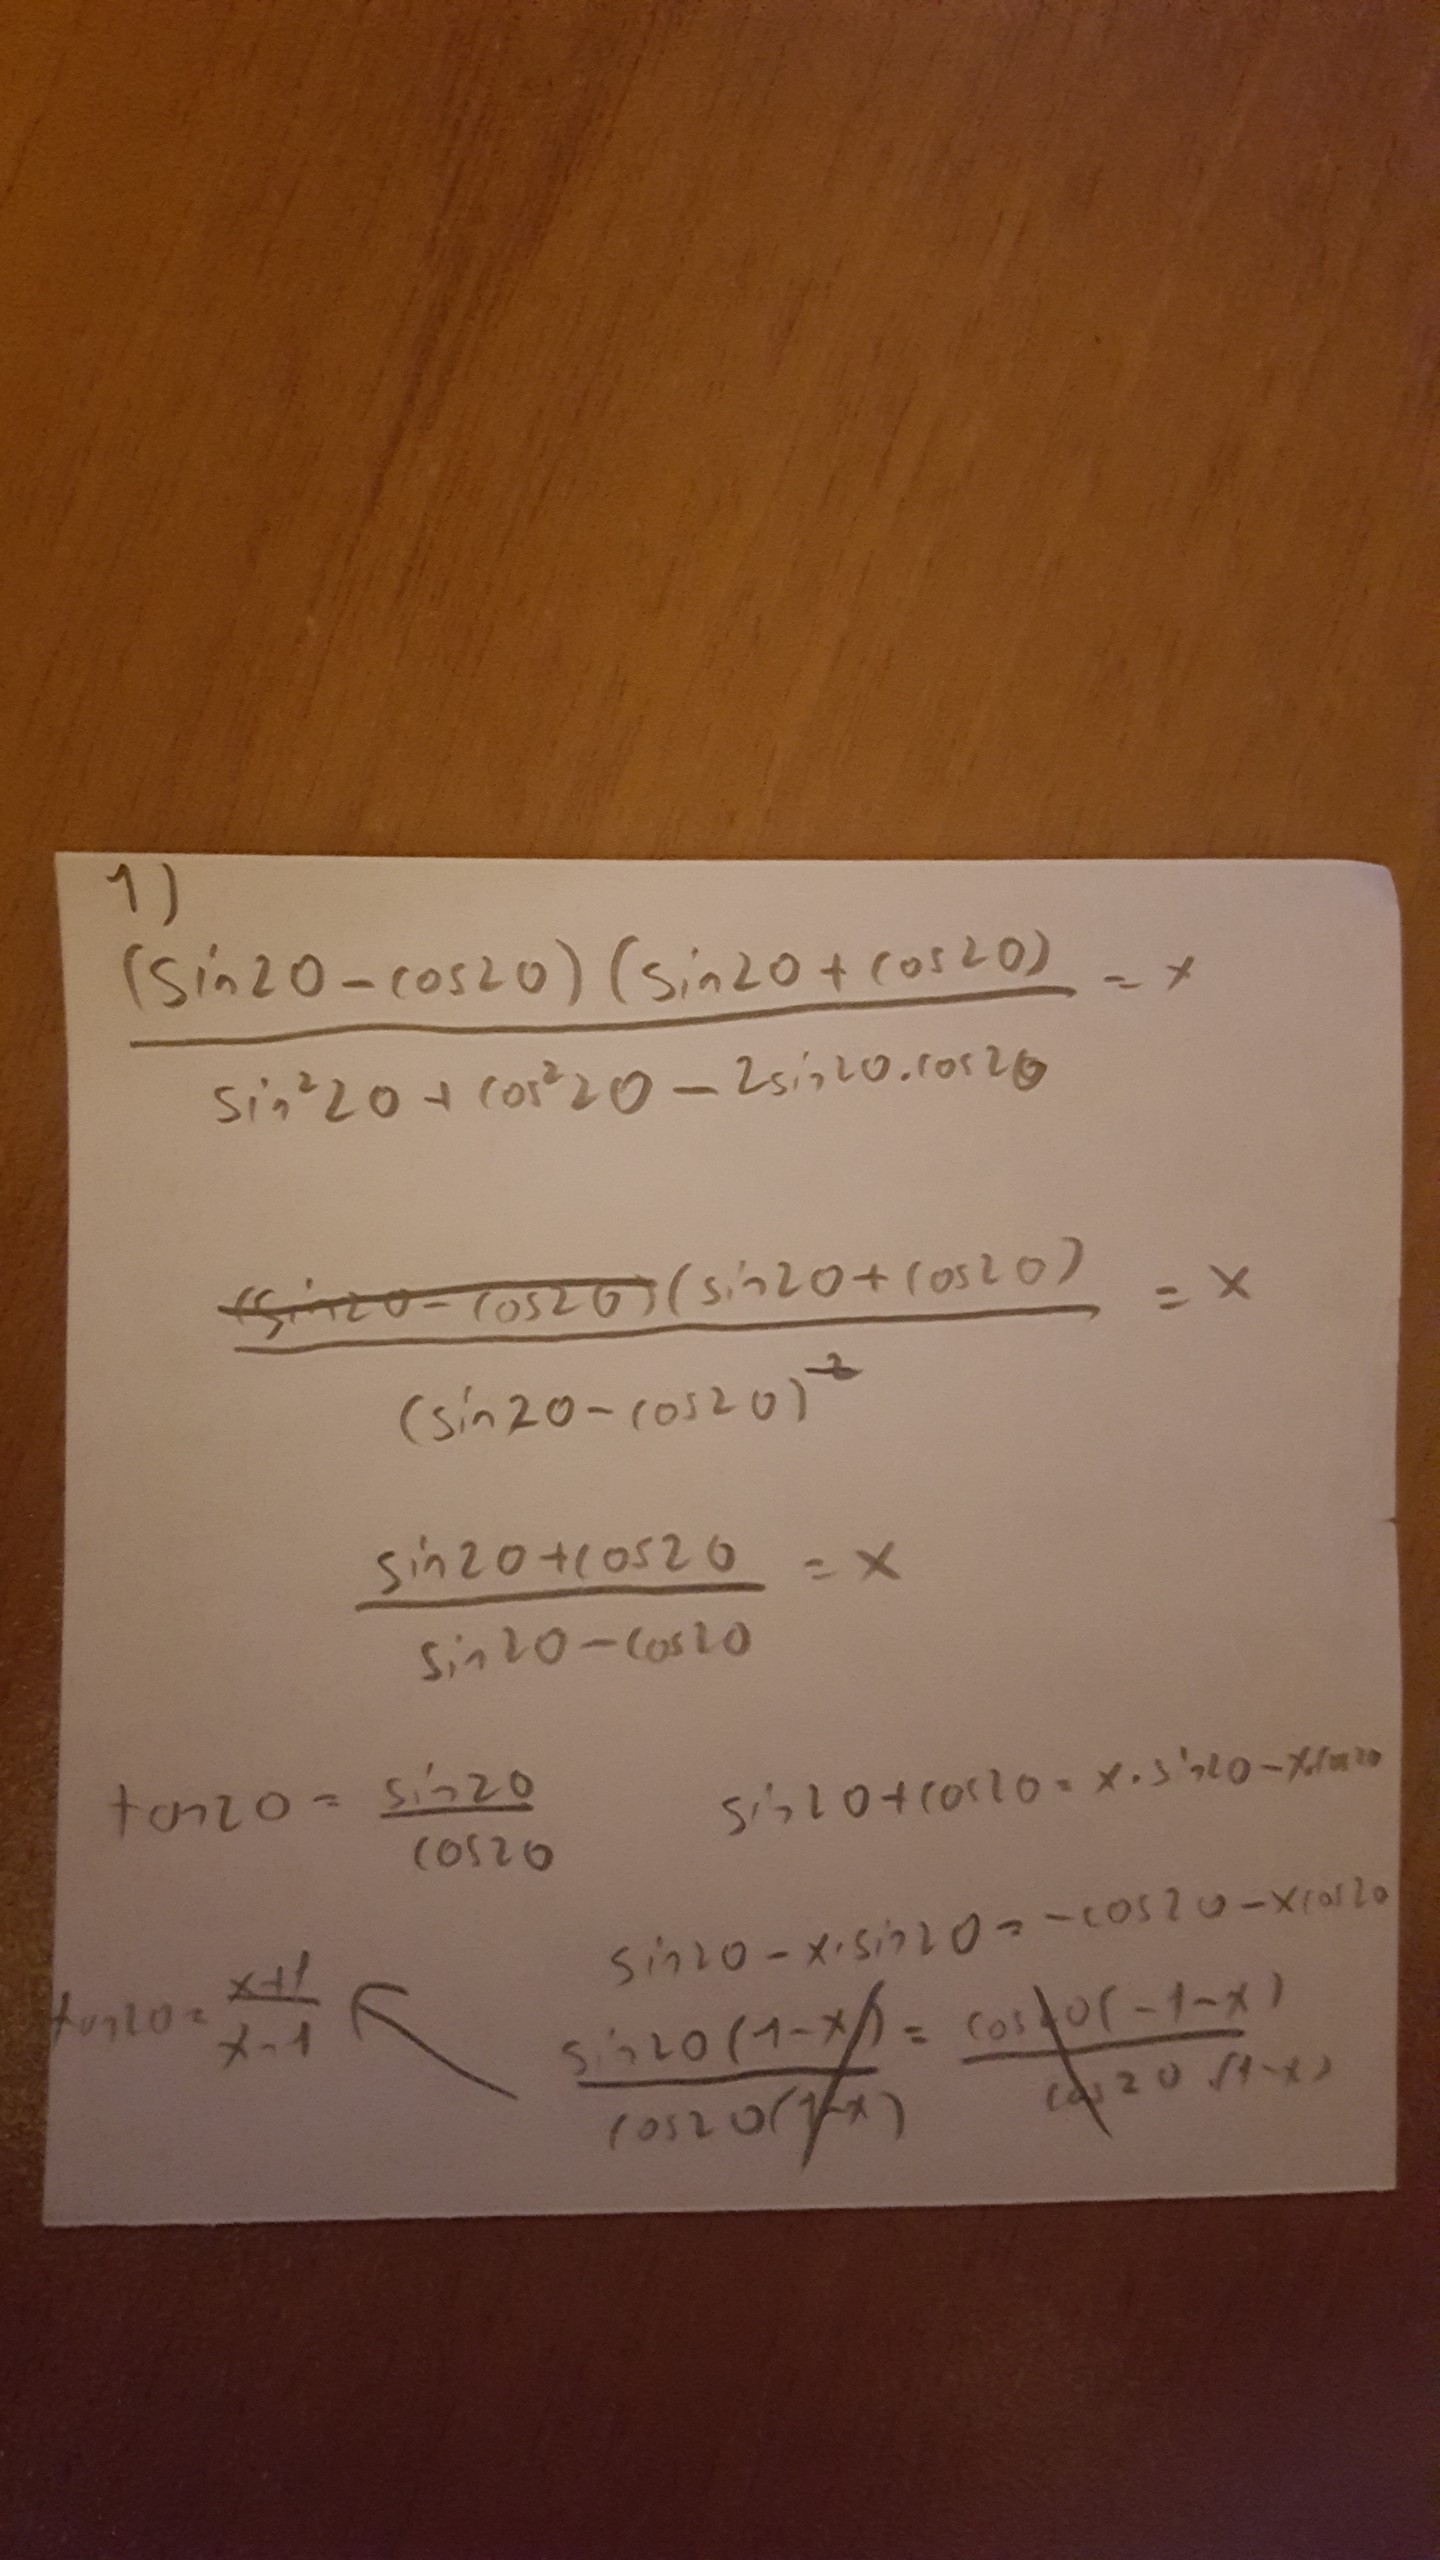 1)
(sin20-cos20)(sin20+cos20) = x
sin²20+cos²20-2sin20.cos20
(sin20-cos20)(sin20+cos20) = x
(sin20-cos20)²
sin20+cos20 = x
sin20-cos20
tan20 = sin20
cos20
sin20+cos20 = x.sin20-xcos20
sin20-x.sin20 = -cos20-xcos20
tan20 = x+1
x-1
sin20(1-x) = cos20(-1-x)
cos20(1-x) cos20(1-x)